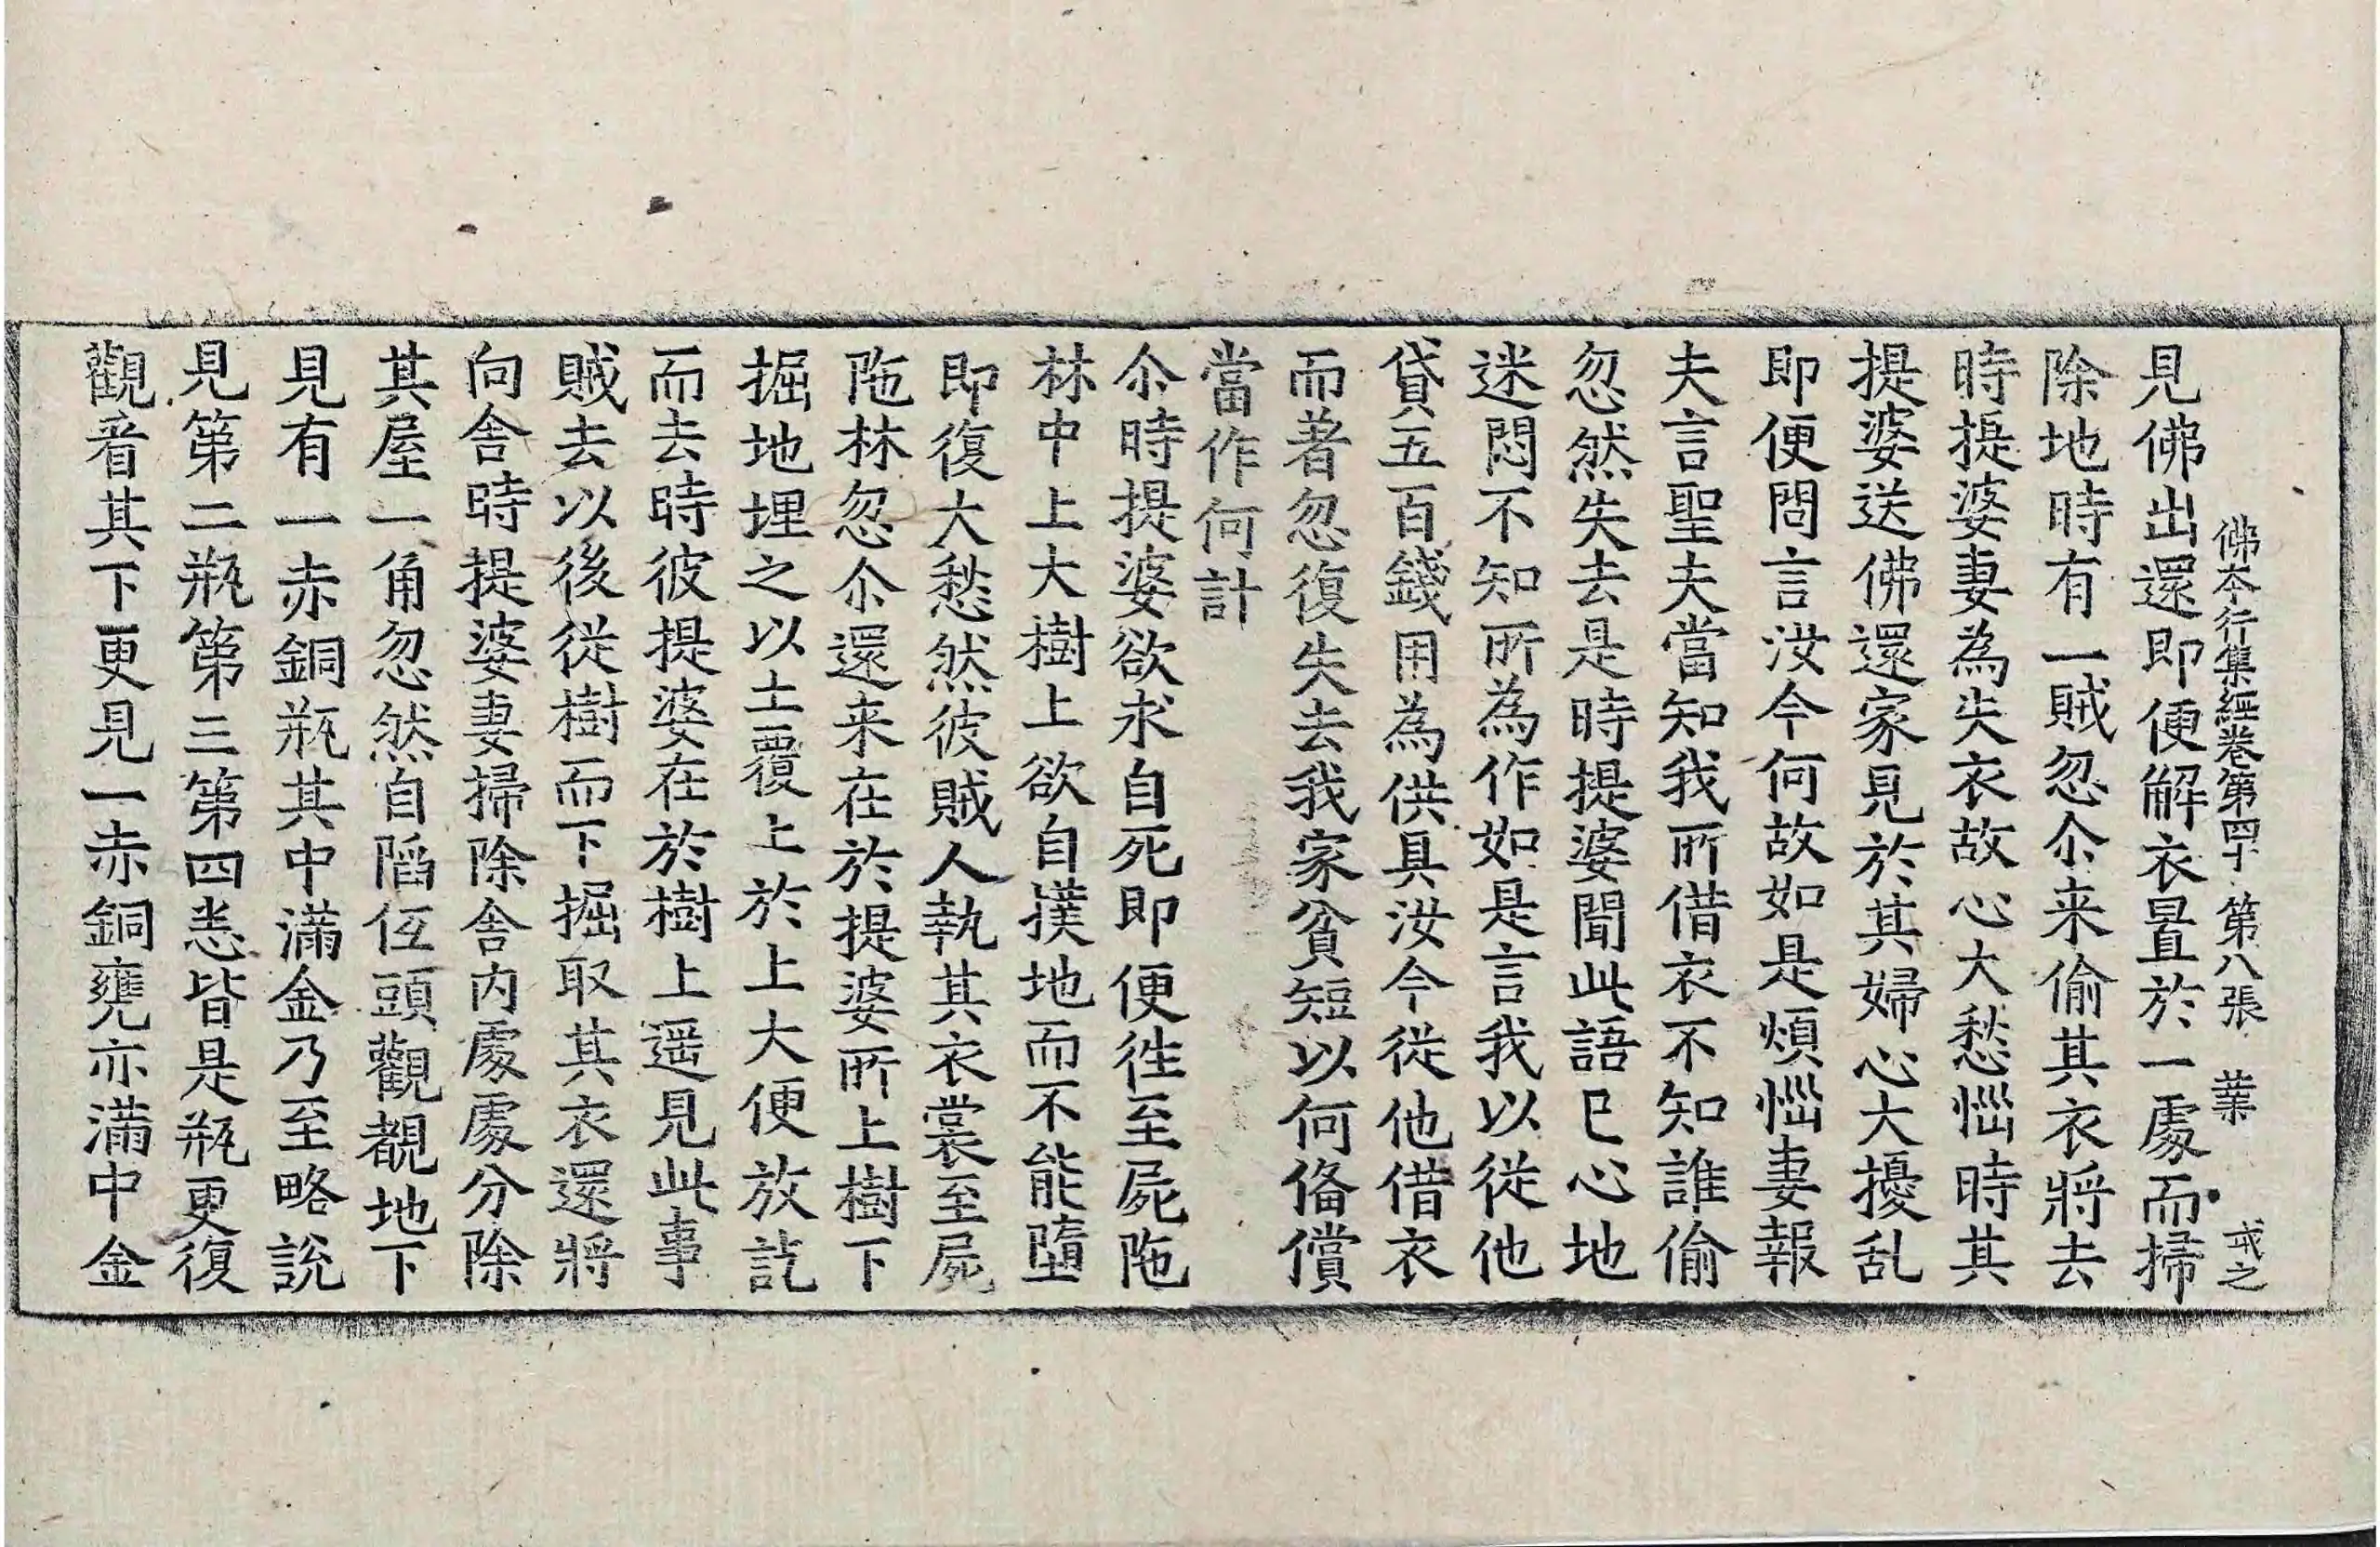 佛本行集經卷第四十 第八張 業 戒之
見佛出還即便解衣置於一處而掃
除地時有一賊忽尒来偷其衣將去
時提婆妻為失衣故心大愁惱時其
提婆送佛還家見於其婦心大擾乱
即便問言汝今何故如是煩惱妻報
夫言聖夫當知我所借衣不知誰偷
忽然失去是時提婆聞此語已心地
迷悶不知所為作如是言我以從他
貸五百錢用為供具汝今從他借衣
而著忽復失去我家貧短以何俻償
當作何計
尒時提婆欲求自死即便往至屍陁
林中上大樹上欲自撲地而不能墮
即復大愁然彼賊人執其衣裳至屍
陁林忽尒還来在於提婆所上樹下
掘地埋之以土覆上於上大便放訖
而去時彼提婆在於樹上遥見此事
賊去以後從樹而下掘取其衣還將
向舍時提婆妻掃除舍内處處分除
其屋一角忽然自陷仾頭觀覩地下
見有一赤銅瓶其中滿金乃至略說
見第二瓶第三第四悉皆是瓶更復
觀看其下更見一赤銅甕亦滿中金